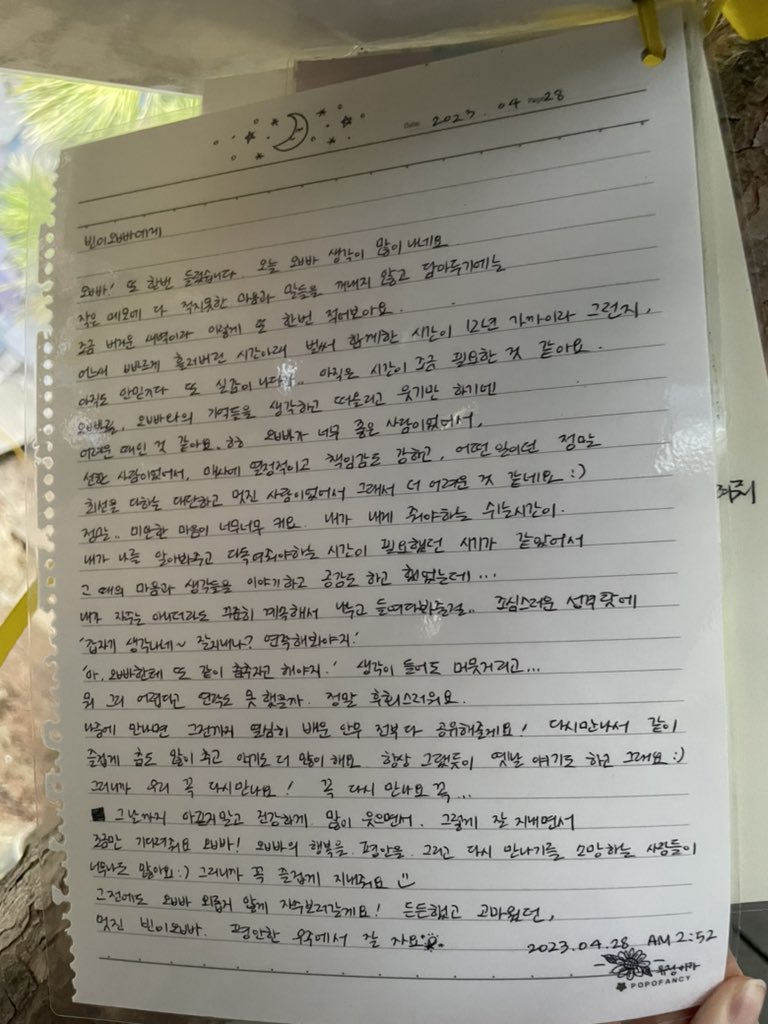 Date. 2023. 04. 28
빈이오빠에게
오빠! 또 한번 들렀습니다. 오늘 오빠 생각이 많이 나네요
작은 메모에 다 적지못한 마음과 말들을 꺼내지 않고 담아두기에는
조금 버거운 새벽이라 이렇게 또 한번 적어보아요.
어느새 빠르게 흘러버린 시간아래 벌써 함께한 시간이 12년 가까이라 그런지,
아직도 안믿기다 또 실감이 나다가.. 아직은 시간이 조금 필요한 것 같아요.
오빠를, 오빠와의 기억들을 생각하고 떠올리고 웃기만 하기엔
어려운 때인 것 같아요. ㅎㅎ 오빠가 너무 좋은 사람이었어서,
선한 사람이었어서, 매사에 열정적이고 책임감도 강하고, 어떤 일이던 정말
최선을 다하는 대단하고 멋진 사람이었어서 그래서 더 어려운 것 같네요 :)
정말.. 미안한 마음이 너무너무 커요. 내가 내게 줘야하는 쉬는시간이.
내가 나를 알아봐주고 다독여줘야하는 시간이 필요했던 시기가 같았어서
그 때의 마음과 생각들을 이야기하고 공감도 하고 했었는데...
내가 자주는 아니더라도 꾸준히 계속해서 묻고 들여다봐줄걸.. 조심스러운 성격 탓에
'갑자기 생각나네~ 잘지내나? 연락해봐야지.'
'아, 오빠한테 또 같이 춤추자고 해야지.' 생각이 들어도 머뭇거리고...
뭐 그리 어렵다고 연락도 못 했을까. 정말 후회스러워요.
나중에 만나면 그전까지 열심히 배운 안무 전부 다 공유해줄게요! 다시만나서 같이
즐겁게 춤도 많이 추고 얘기도 더 많이 해요. 항상 그랬듯이 옛날 얘기도 하고 그래요 :)
그러니까 우리 꼭 다시만나요! 꼭 다시 만나요 꼭...
그날까지 아프지말고 건강하게. 많이 웃으면서. 그렇게 잘 지내면서
조금만 기다려줘요 오빠! 오빠의 행복을. 평안을. 그리고 다시 만나기를 소망하는 사람들이
너무나도 많아요 :) 그러니까 꼭 즐겁게 지내줘요
그전에도 오빠 외롭지 않게 자주보러갈게요! 든든했고 고마웠던,
멋진 빈이오빠. 평안한 우주에서 잘 자요
2023.04.28 AM 2:52
POPOFANCY